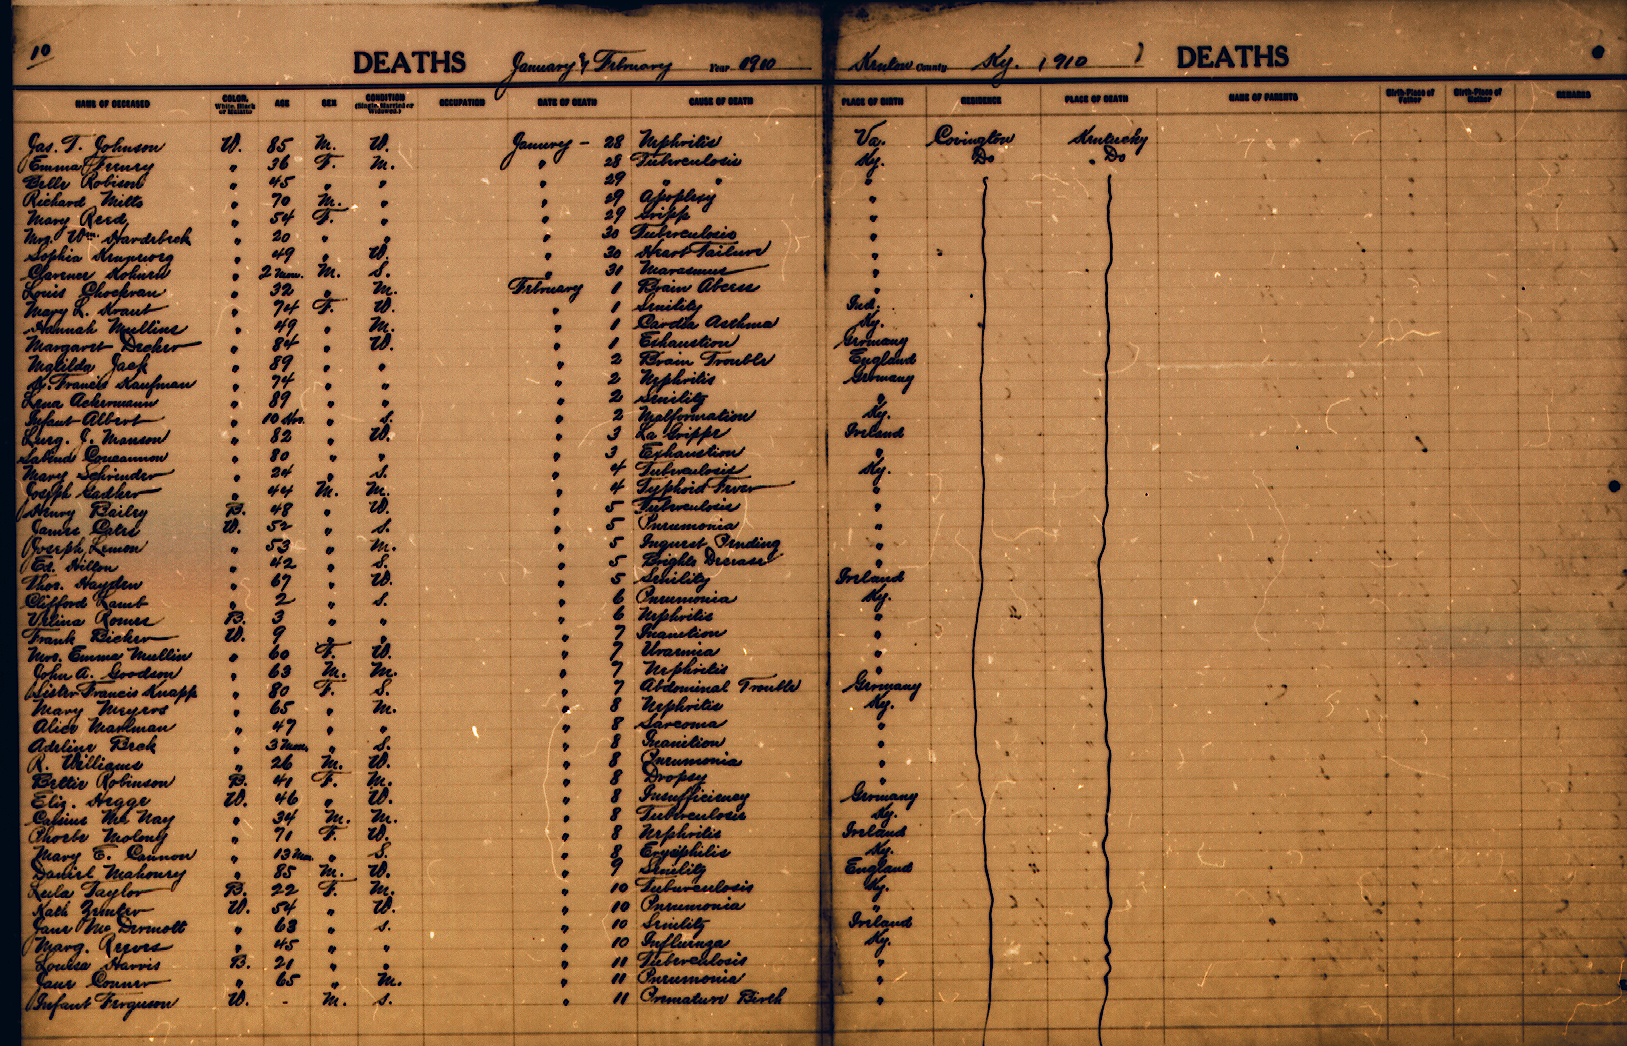 10
DEATHS January & February Year 1910 Kenton County Ky. 1910 DEATHS
NAME OF DECEASED COLOR. White, Black or Mulatto AGE SEX CONDITION (Single, Married or Widowed.) OCCUPATION DATE OF DEATH CAUSE OF DEATH PLACE OF BIRTH RESIDENCE PLACE OF DEATH NAME OF PARENTS Birth-Place of Father Birth-Place of Mother REMARKS
Jas. T. Johnson W. 85 M. W. January - 28 Nephritis Va. Covington Kentucky
Emma " 36 F. M. " 28 Tuberculosis Ky. Do " Do
Belle Robison " 45 " " " 29 " " "
Richard Mitts " 70 M. " " 29 Apoplexy "
Mary Reed " 54 F. " " 29 Gripp "
Mrs. Wm. Hardebeck " 20 " " " 30 Tuberculosis "
Sophia " 49 " W. " 30 Heart Failure "
Clarence " 2 Mon. M. S. " 31 Marasmus "
Louis " 32 " M. February 1 Brain Abcess "
Mary L. Kraut " 74 F. W. " 1 Senility Ind.
Hannah Mullins " 49 " M. " 1 Cardia Asthma Ky.
Margaret Decker " 84 " W. " 1 Exhaustion Germany
Matilda Jack " 89 " " " 2 Brain Trouble England
Francis Kaufman " 74 " " " 2 Nephritis Germany
Lena Ackermann " 89 " " " 2 Senility "
Infant Albert " 10 Hrs. " S. " 2 Malformation Ky.
J. Manson " 82 " W. " 3 La Grippe Ireland
Concannon " 80 " " " 3 Exhaustion "
Mary Schrinder " 24 " S. " 4 Tuberculosis Ky.
Joseph " 44 M. M. " 4 Typhoid Fever "
Henry Bailey B. 48 " W. " 5 Tuberculosis "
James Cates W. 52 " S. " 5 Pneumonia "
Joseph Lemon " 53 " M. " 5 Inquest Pending "
Ed. Hilton " 42 " S. " 5 Brights Decease "
Thos. Hayden " 67 " W. " 5 Senility Ireland
Clifford Lamb " 2 " S. " 6 Pneumonia Ky.
Velina Romes B. 3 " " " 6 Nephritis "
Frank Bicker W. 9 " " " 7 Inanition "
Mrs. Emma Mullin " 60 F. W. " 7 Uraemia "
John A. Goodson " 63 M. M. " 7 Nephritis "
Sister Francis Knapp " 80 F. S. " 7 Abdominal Trouble Germany
Mary Meyers " 65 " M. " 8 Nephritis Ky.
Alice Markman " 47 " " " 8 Sarcoma "
Adeline Beck " 3 Mon. " S. " 8 Inanition "
R. Williams " 26 M. W. " 8 Pneumonia "
Bettie Robinson B. 41 F. M. " 8 Dropsy "
Eliz. Hegge W. 46 " W. " 8 Insufficiency Germany
Cassius Mc Nay " 34 M. M. " 8 Tuberculosis Ky.
Phoebe Molony " 71 F. W. " 8 Nephritis Ireland
Mary E. Cannon " 13 Mon. " S. " 8 Erysiphilis Ky.
Daniel Mahoney " 85 M. W. " 9 Senility England
Lula Taylor B. 22 F. M. " 10 Tuburculosis Ky.
Kath W. 54 " W. " 10 Pneumonia "
Jane Mc Dermott " 68 " S. " 10 Senility Ireland
Marg. Reeves " 45 " " " 10 Influenza Ky.
Louisa Harris B. 21 " " " 11 Tuberculosis "
Jane Conner " 65 " M. " 11 Pneumonia "
Infant Ferguson W. - M. S. " 11 Premature Birth "